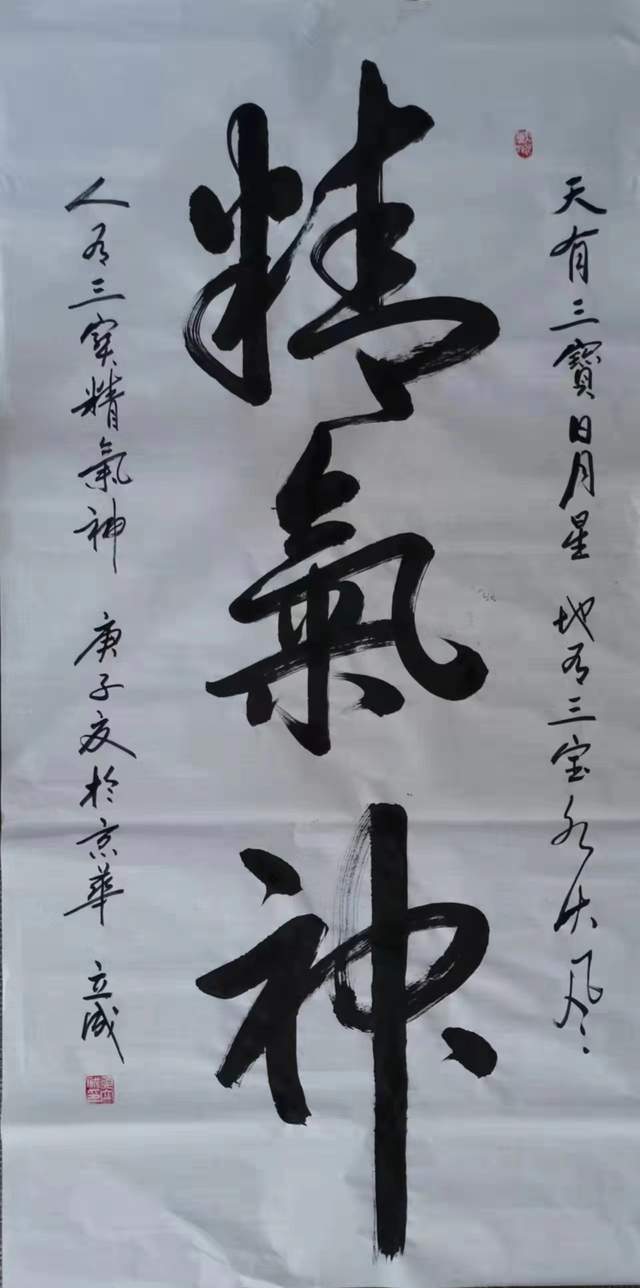 天有三寶日月星 地有三宝水火风
精氣神
人有三寶精氣神 庚子夏於京華 立成